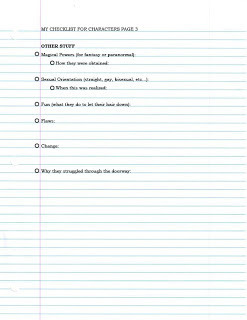 MY CHECKLIST FOR CHARACTERS PAGE 3
OTHER STUFF
Magical Powers (for fantasy or paranormal):
How they were obtained:
Sexual Orientation (straight, gay, bisexual, etc...):
When this was realized:
Fun (what they do to let their hair down):
Flaws:
Change:
Why they struggled through the doorway: